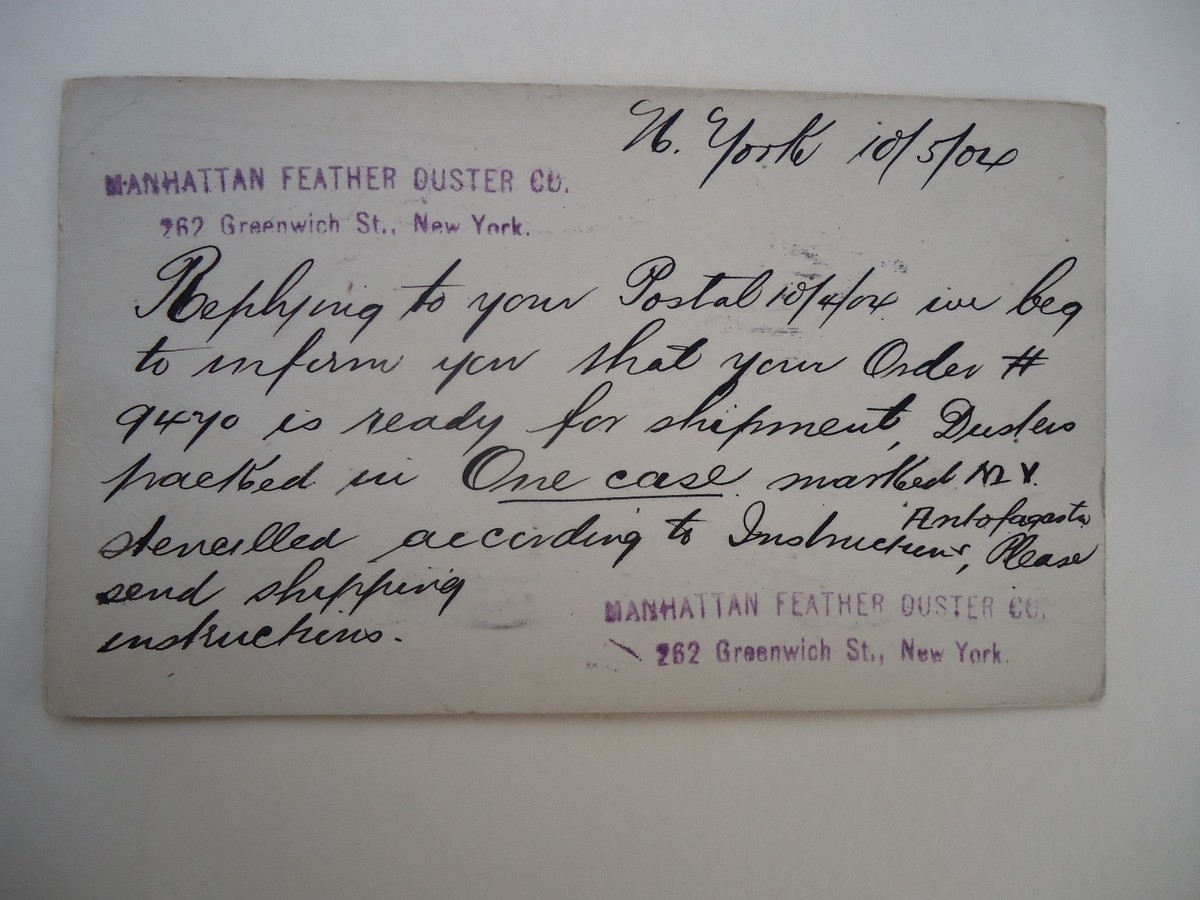 N. York 10/5/04
MANHATTAN FEATHER DUSTER CO.
262 Greenwich St., New York.
Replying to your Postal 10/4/04 we beg
to inform you that your Order #
9470 is ready for shipment, Dusters
packed in One case marked
Antofagasta
stencilled according to Instructions, Please
send shipping
instructions.
MANHATTAN FEATHER DUSTER CO.
262 Greenwich St., New York.